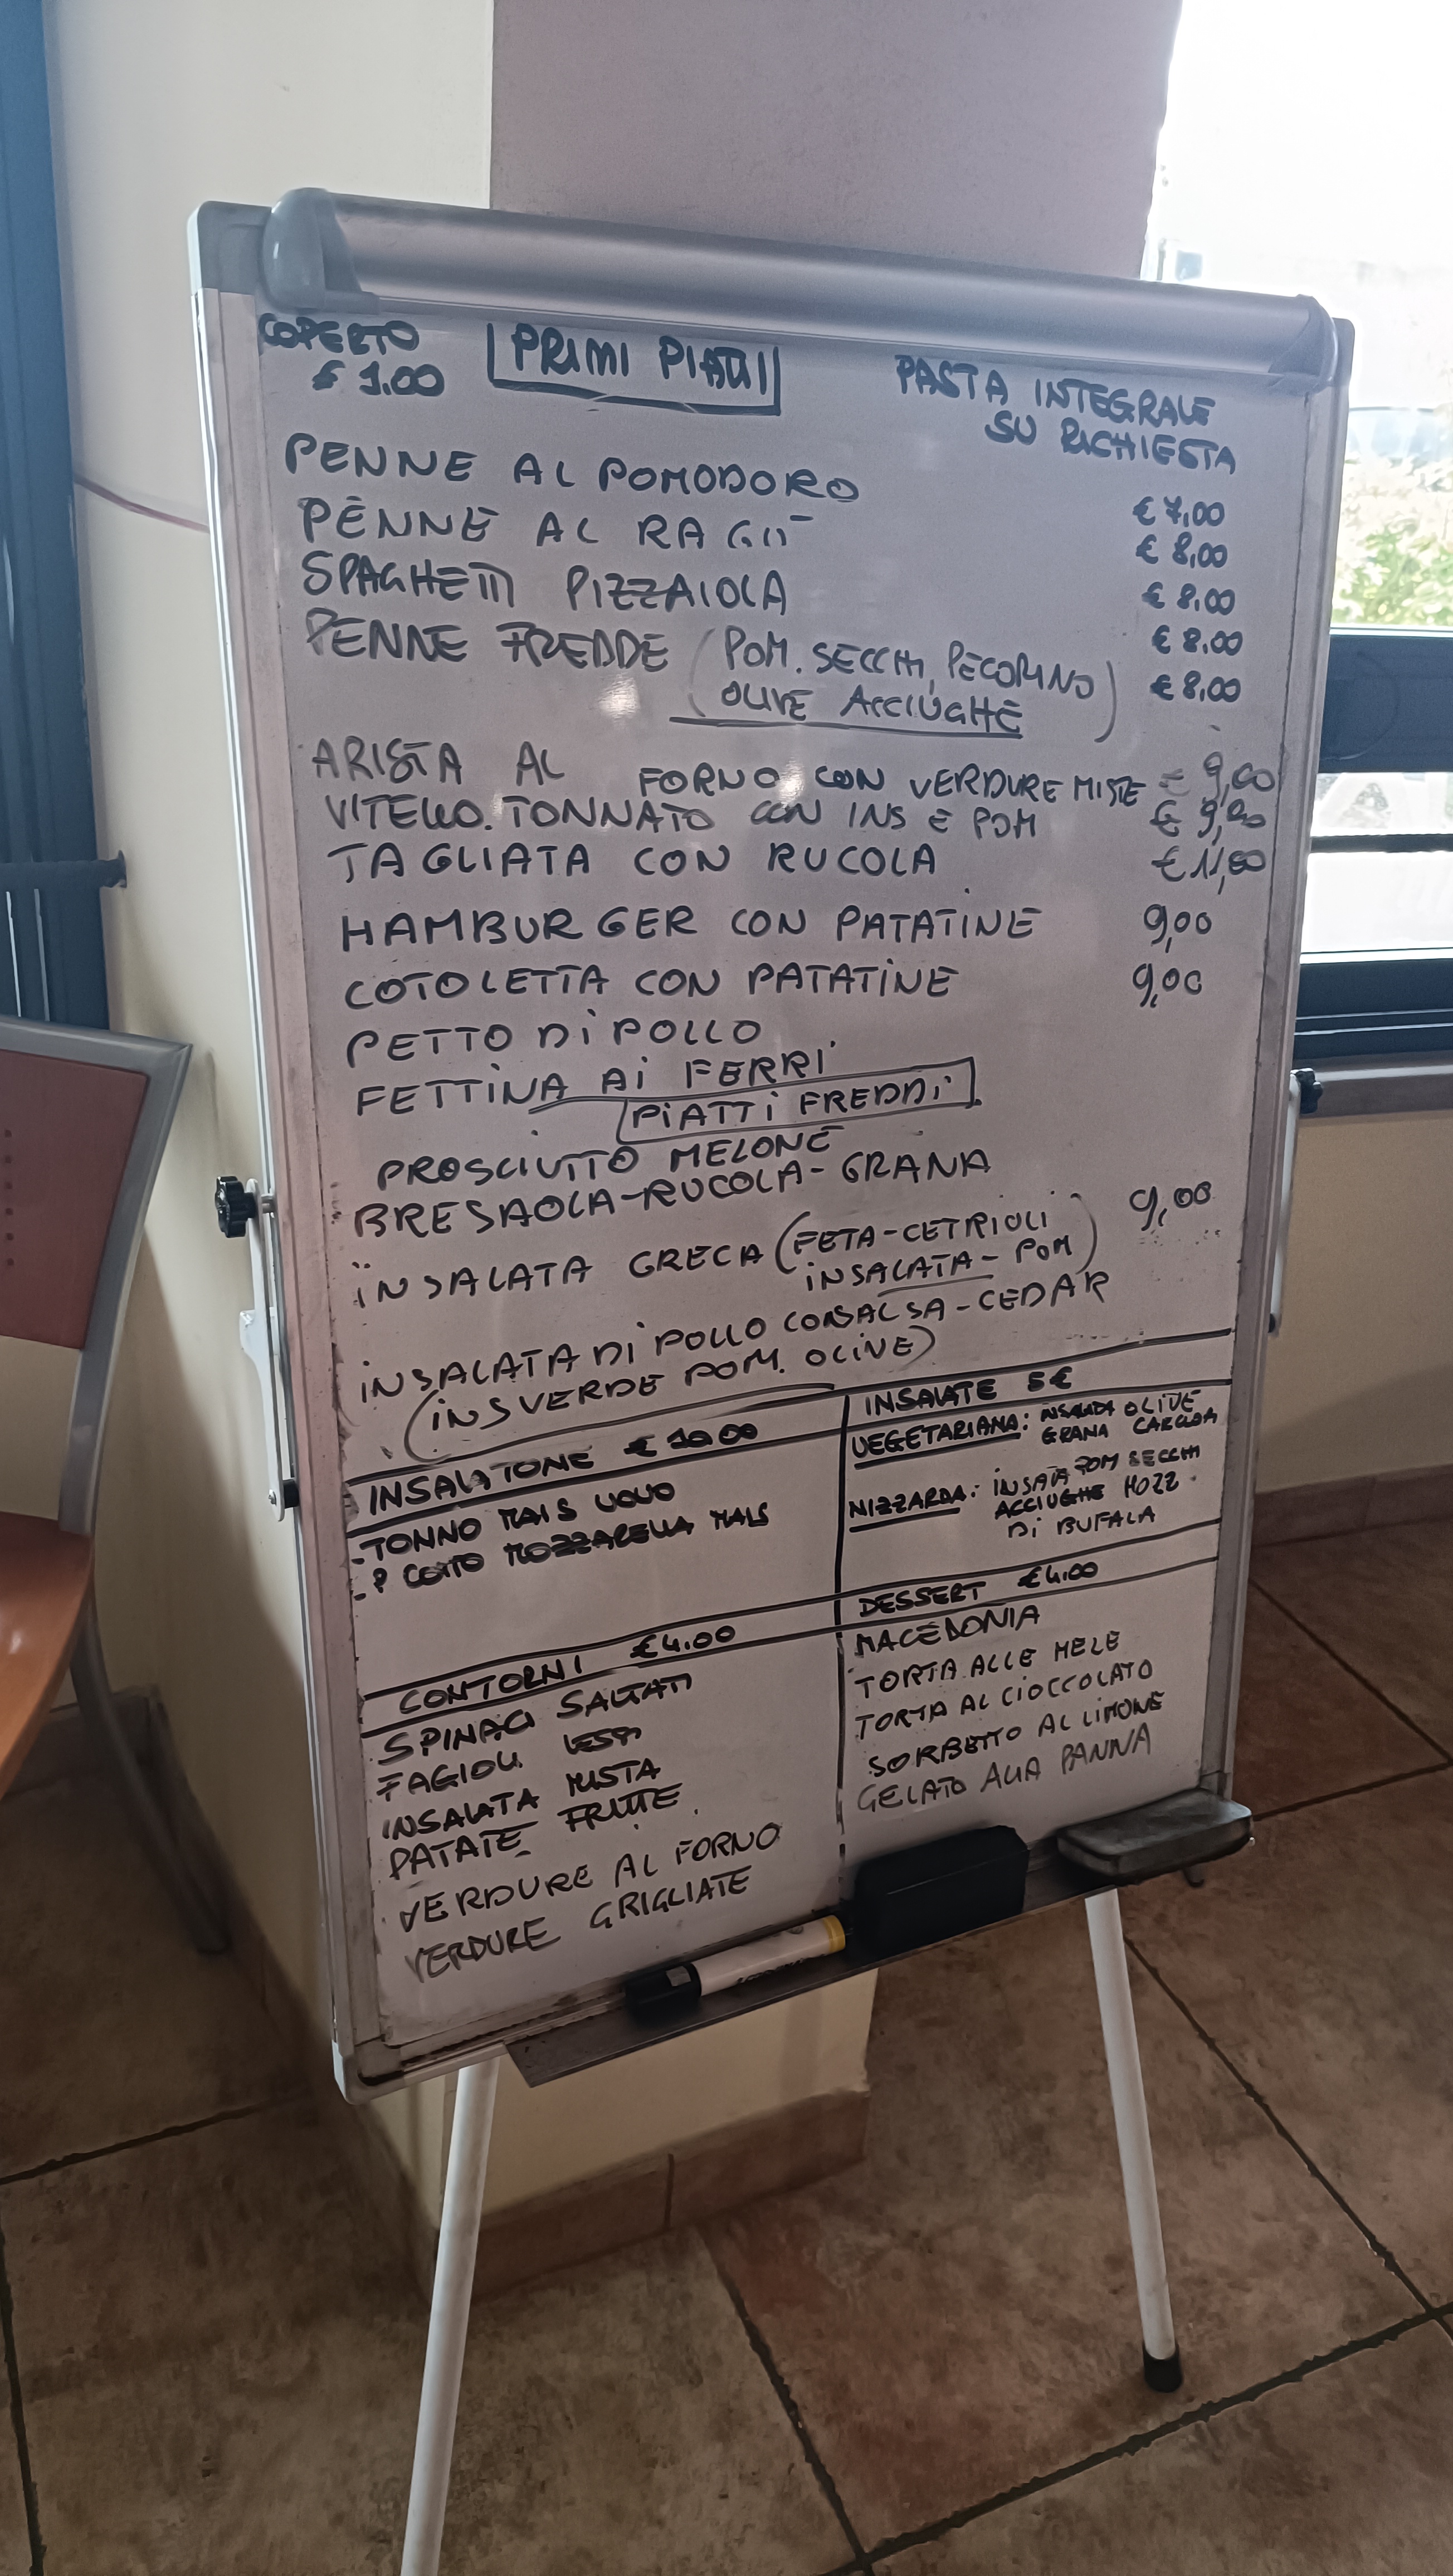 COPERTO
€ 1.00
PRIMI PIATTI
PASTA INTEGRALE
SU RICHIESTA
PENNE AL POMODORO € 7,00
PENNE AL RAGÙ € 8,00
SPAGHETTI PIZZAIOLA € 8.00
PENNE FREDDE (POM. SECCHI, PECORINO € 8.00
OLIVE ACCIUGHE) € 8,00
ARISTA AL FORNO CON VERDURE MISTE € 9,00
VITELLO. TONNATO CON INS E POM € 9,00
TAGLIATA CON RUCOLA € 11,00
HAMBURGER CON PATATINE 9,00
COTOLETTA CON PATATINE 9,00
PETTO DI POLLO
FETTINA AI FERRI
PIATTI FREDDI
PROSCIUTTO MELONE
BRESAOLA-RUCOLA-GRANA
INSALATA GRECA (FETA-CETRIOLI 9,00
INSALATA-POM)
INSALATA DI POLLO CON SALSA-CEDAR
(INS VERDE POM. OLIVE)
INSALATONE € 10.00
-TONNO MAIS UOVO
-P COTTO MOZZARELLA MAIS
INSALATE 5€
VEGETARIANA: INSALATA OLIVE
GRANA
NIZZARDA: INSATA POM SECCHI
ACCIUGHE MOZZ.
DI BUFALA
CONTORNI €4.00
SPINACI SALTATI
FAGIOLI LESSI
INSALATA MISTA
PATATE FRITTE
VERDURE AL FORNO
VERDURE GRIGLIATE
DESSERT €4.00
MACEDONIA
TORTA ALLE MELE
TORTA AL CIOCCOLATO
SORBETTO AL LIMONE
GELATO ALLA PANNA